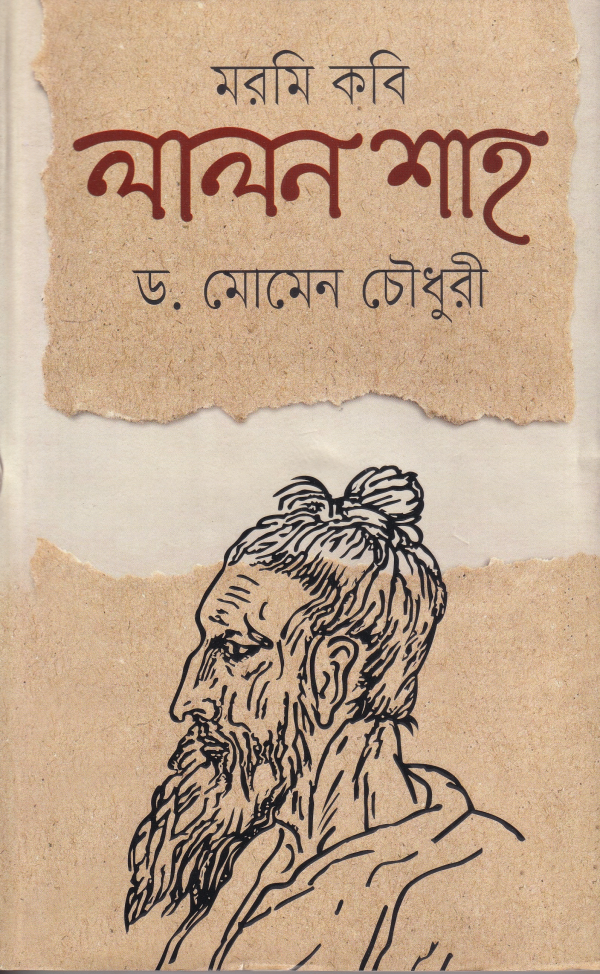 মরমি কবি
লালন শাহ
ড. মোমেন চৌধুরী